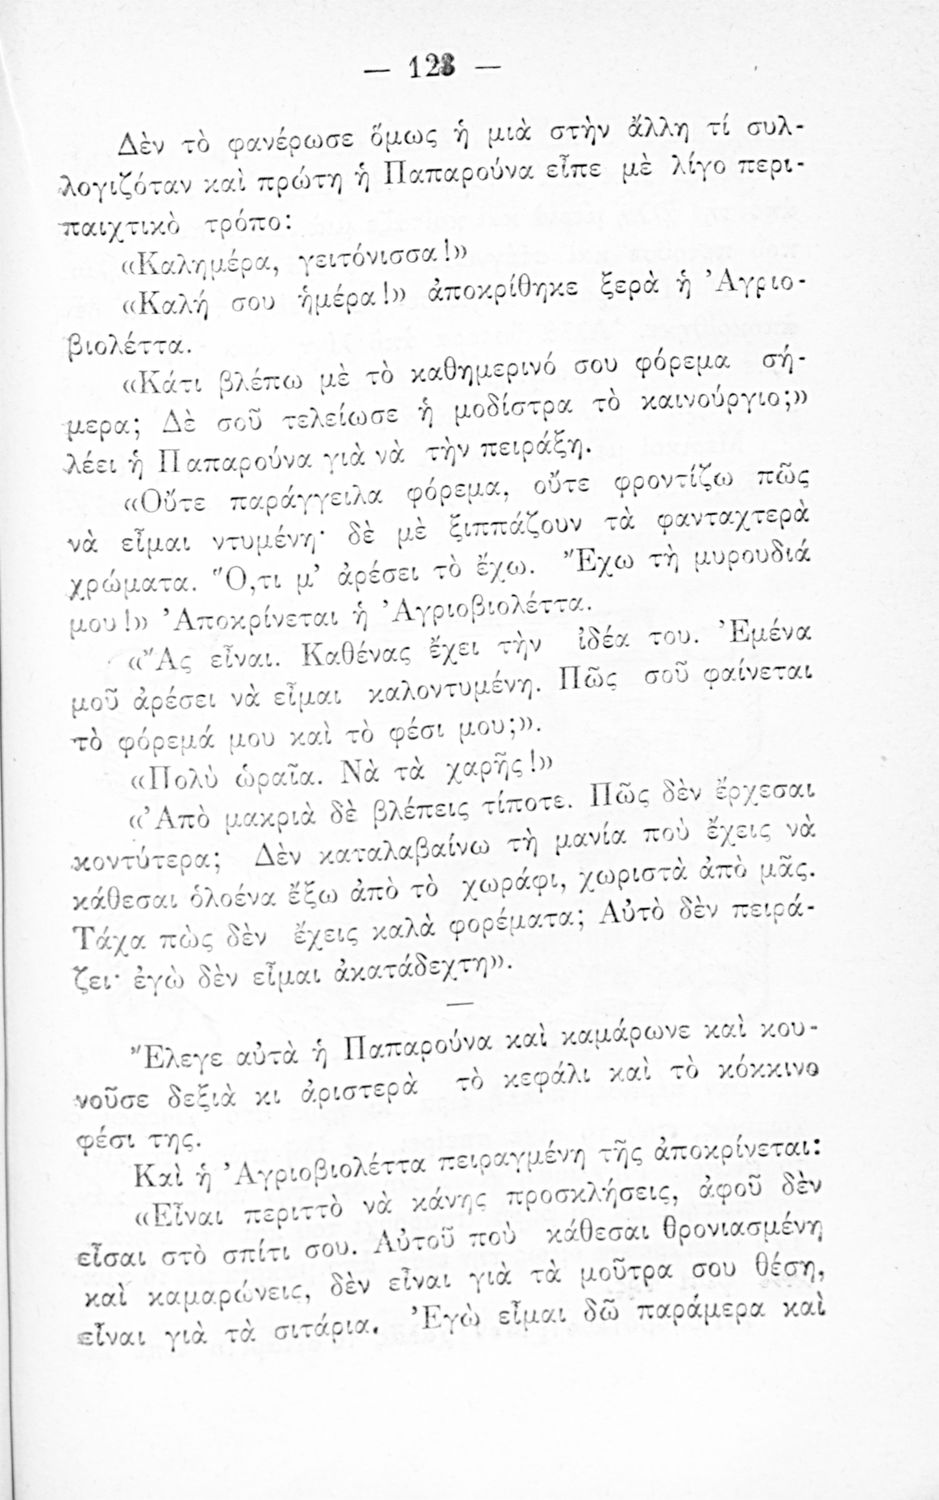 — 123 —
Δὲν τὸ φανέρωσε ὅμως ἡ μιὰ στὴν ἄλλη τί συλ-
λογιζόταν καὶ πρώτη ἡ Παπαρούνα εἶπε μὲ λίγο περι-
παιχτικὸ τρόπο:
«Καλημέρα, γειτόνισσα!»
«Καλή σου ἡμέρα!» ἀποκρίθηκε ξερὰ ἡ Ἀγριο-
βιολέττα.
«Κάτι βλέπω μὲ τὸ καθημερινό σου φόρεμα σή-
μερα; Δὲ σοῦ τελείωσε ἡ μοδίστρα τὸ καινούργιο;»
λέει ἡ Παπαρούνα γιὰ νὰ τὴν πειράξη.
«Οὔτε παράγγειλα φόρεμα, οὔτε φροντίζω πῶς
νὰ εἶμαι ντυμένη· δὲ μὲ ξιππάζουν τὰ φανταχτερὰ
χρώματα. Ὅ,τι μ’ ἀρέσει τὸ ἔχω. Ἔχω τὴ μυρουδιά
μου!» Ἀποκρίνεται ἡ Ἀγριοβιολέττα.
«Ἂς εἶναι. Καθένας ἔχει τὴν ἰδέα του. Ἐμένα
μοῦ ἀρέσει νὰ εἶμαι καλοντυμένη. Πῶς σοῦ φαίνεται
τὸ φόρεμά μου καὶ τὸ φέσι μου;».
«Πολὺ ὡραῖα. Νὰ τὰ χαρῆς!»
«Ἀπὸ μακριὰ δὲ βλέπεις τίποτε. Πῶς δὲν ἔρχεσαι
κοντύτερα; Δὲν καταλαβαίνω τὴ μανία ποὺ ἔχεις νὰ
κάθεσαι ὁλοένα ἔξω ἀπὸ τὸ χωράφι, χωριστὰ ἀπὸ μᾶς.
Τάχα πὼς δὲν ἔχεις καλὰ φορέματα; Αὐτὸ δὲν πειρά-
ζει· ἐγὼ δὲν εἶμαι ἀκατάδεχτη».
Ἔλεγε αὐτὰ ἡ Παπαρούνα καὶ καμάρωνε καὶ κου-
νοῦσε δεξιὰ κι ἀριστερὰ τὸ κεφάλι καὶ τὸ κόκκινο
φέσι της.
Καὶ ἡ Ἀγριοβιολέττα πειραγμένη τῆς ἀποκρίνεται:
«Εἶναι περιττὸ νὰ κάνῃς προσκλήσεις, ἀφοῦ δὲν
εἶσαι στὸ σπίτι σου. Αὐτοῦ ποὺ κάθεσαι θρονιασμένη
καὶ καμαρώνεις, δὲν εἶναι γιὰ τὰ μοῦτρα σου θέση,
εἶναι γιὰ τὰ σιτάρια. Ἐγὼ εἶμαι δῶ παράμερα καὶ